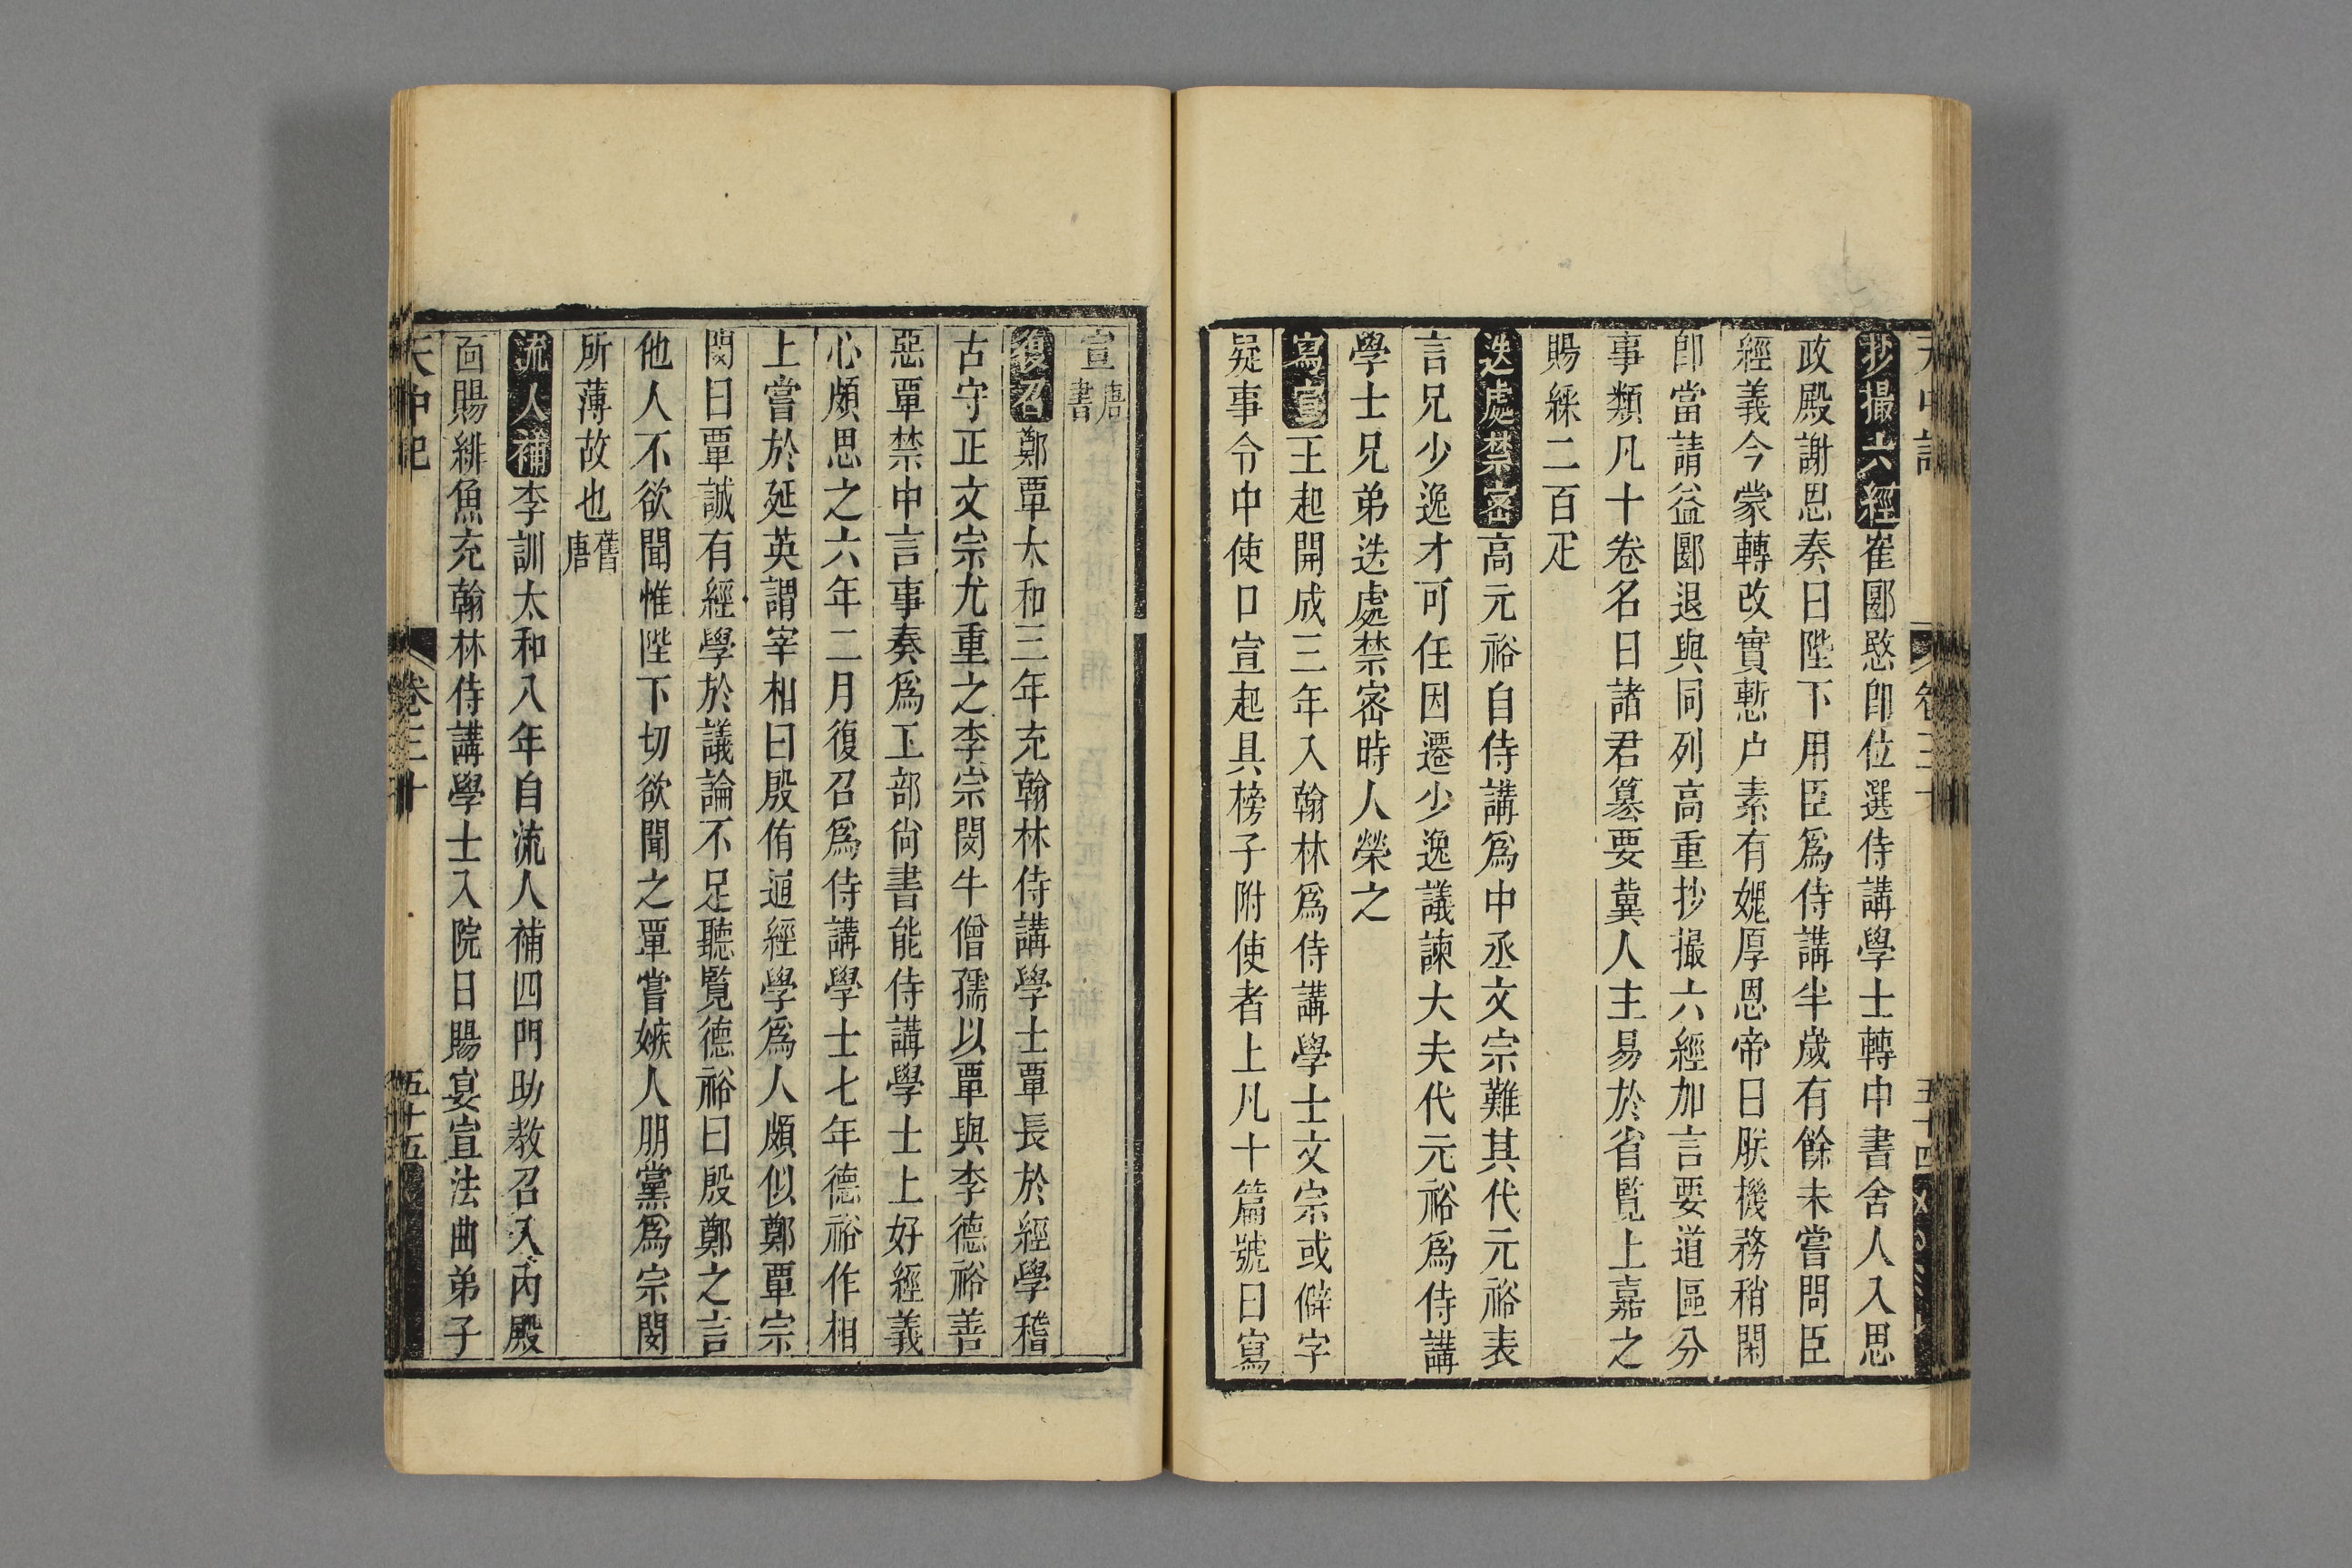 天中記 卷三十 五十四
抄撮六經崔郾愍卽位選侍講學士轉中書舍人入思
政殿謝恩奏曰陛下用臣爲侍講半歲有餘未嘗問臣
經義今蒙轉改實慙户素有媿厚恩帝曰朕機務稍閑
卽當請益郾退與同列高重抄撮六經加言要道區分
事類凡十卷名曰諸君纂要冀人主易於省覽上嘉之
賜綵二百疋
迭處禁密高元裕自侍講爲中丞文宗難其代元裕表
言兄少逸才可任因遷少逸議諫大夫代元裕爲侍講
學士兄弟迭處禁密時人榮之
寫宣王起開成三年入翰林爲侍講學士文宗或僻字
疑事令中使口宣起具榜子附使者上凡十篇號曰寫
宣唐書
復召鄭覃太和三年充翰林侍講學士覃長於經學稽
古守正文宗尤重之李宗閔牛僧孺以覃與李德裕善
惡覃禁中言事奏爲工部尙書能侍講學士上好經義
心頗思之六年二月復召爲侍講學士七年德裕作相
上嘗於延英謂宰相曰殷侑通經學爲人頗似鄭覃宗
閔曰覃誠有經學於議論不足聽覽德裕曰殷鄭之言
他人不欲聞惟陛下切欲聞之覃嘗嫉人朋黨爲宗閔
所薄故也舊唐
流人補李訓太和八年自流人補四門助教召入內殿
面賜緋魚充翰林侍講學士入院日賜宴宣法曲弟子
天中記 卷三十 五十五